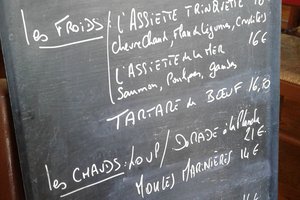 les FROIDS: L'ASSIETTE TRINQUETTE 16
Chèvre Chaud, Flan de légumes, Crudités
16€
L'ASSIETTE de la MER
Saumon, Poulpes, Gambas
TARTARE de BŒUF 16,50
les CHAUDS: LOUP / DORADE à la Plancha
21€
MOULES MARINIÈRES 14€